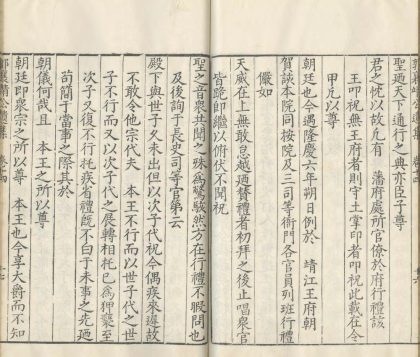 聖廼天下通行之典亦臣子尊
君之忱以故凡有 藩府處所官僚於府行禮該
王叩祝無王府者則守土掌印者叩祝此載在令
甲凡以尊
朝廷也今遇隆慶六年朔日例於 靖江王府朝
賀該本院同按院及三司等衙門各官員列班行禮
儼如
天威在上無敢怠越廼贊禮者初拜之後止唱衆官
皆跪卽繼以俯伏不聞祝
聖之音衆共聞之殊為驚駭然方在行禮不暇問也
及後詢于長史司等官第云
殿下與世子久未出但以次子代祝今偶疾未進故
不敢令他宗代夫 本王不行而以世子代之世
子不行而又以次子代之展轉相托已為狎褻至
次子又復不行托疾省禮旣不曰于未事之先廼
苟簡于當事之際其於
朝儀何哉且 本王之所以尊
朝廷卽衆宗之所以尊 本王也今享大爵而不知